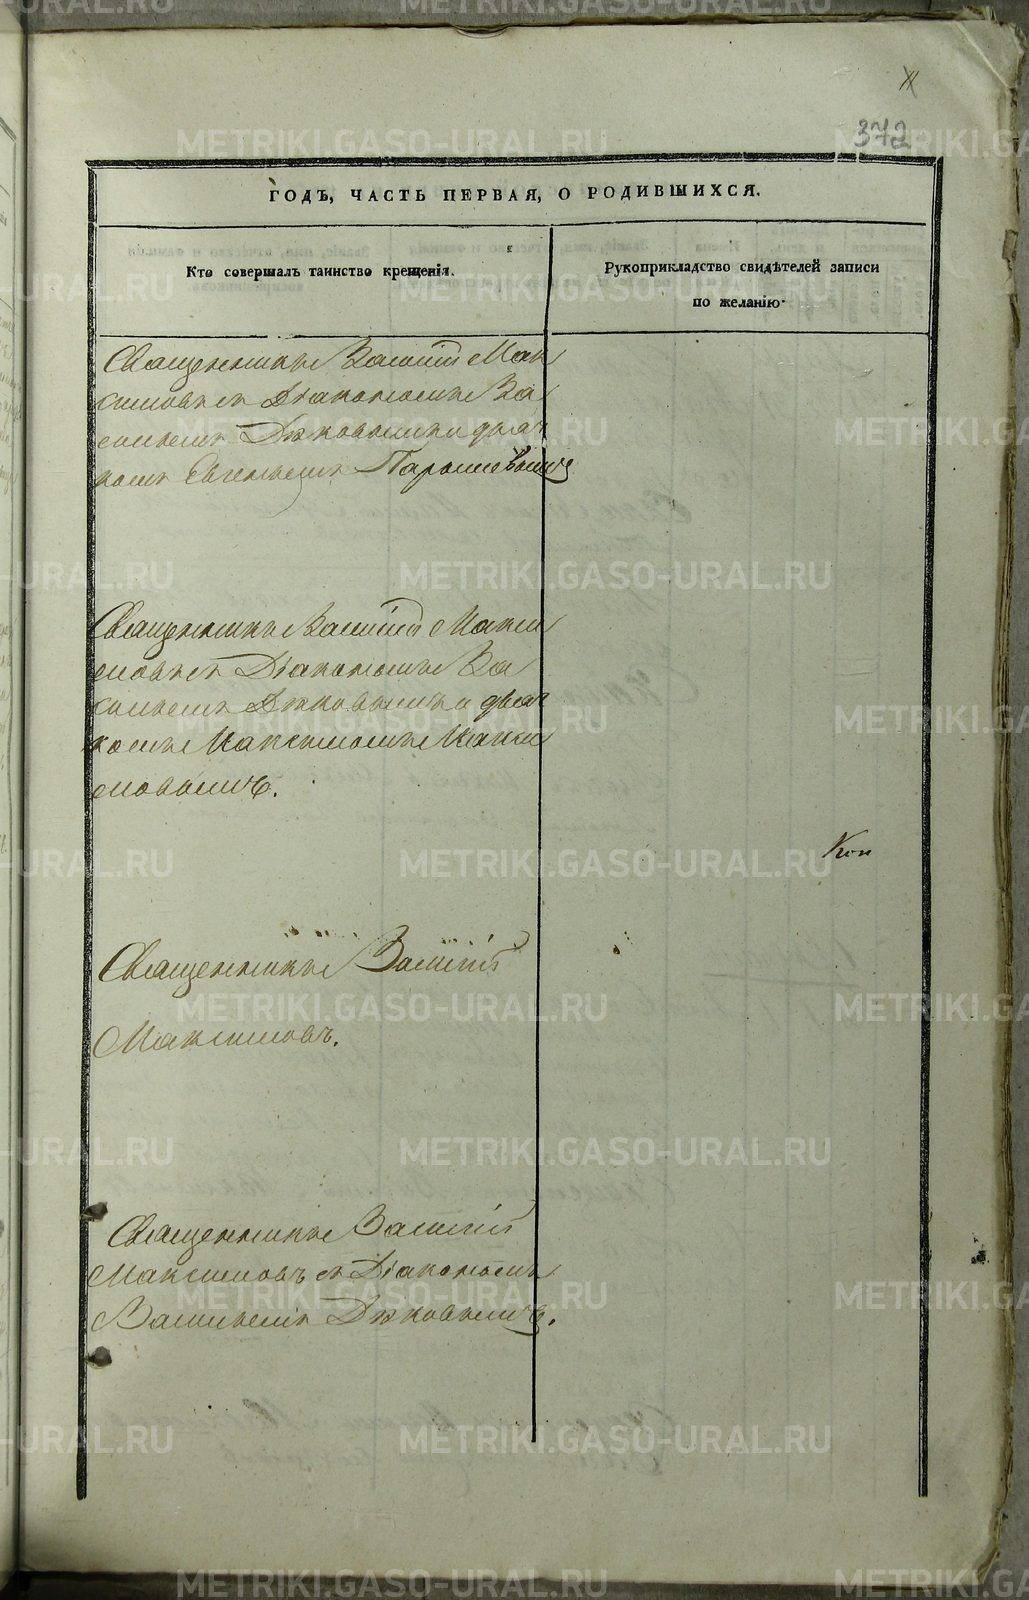 11
372
ГОДЪ, ЧАСТЬ ПЕРВАЯ, О РОДИВШИХСЯ.
Кто совершалъ таинство крещенія.
Рукоприкладство свидѣтелей записи
по желанію
Священникъ Василій Мак
симовъ съ Діакономъ Ва
сильемъ Дяковымъ и дьяч
комъ Евгеньемъ
Священникъ Василій Макси
мовъ съ Діакономъ Ва
сильемъ Дяковымъ и дьяч
комъ Максимомъ Макси
мовымъ.
Священникъ Василій
Максимовъ.
Священникъ Василій
Максимовъ съ Діакономъ
Васильемъ Дяковымъ.
METRIKI.GASO-URAL.RU